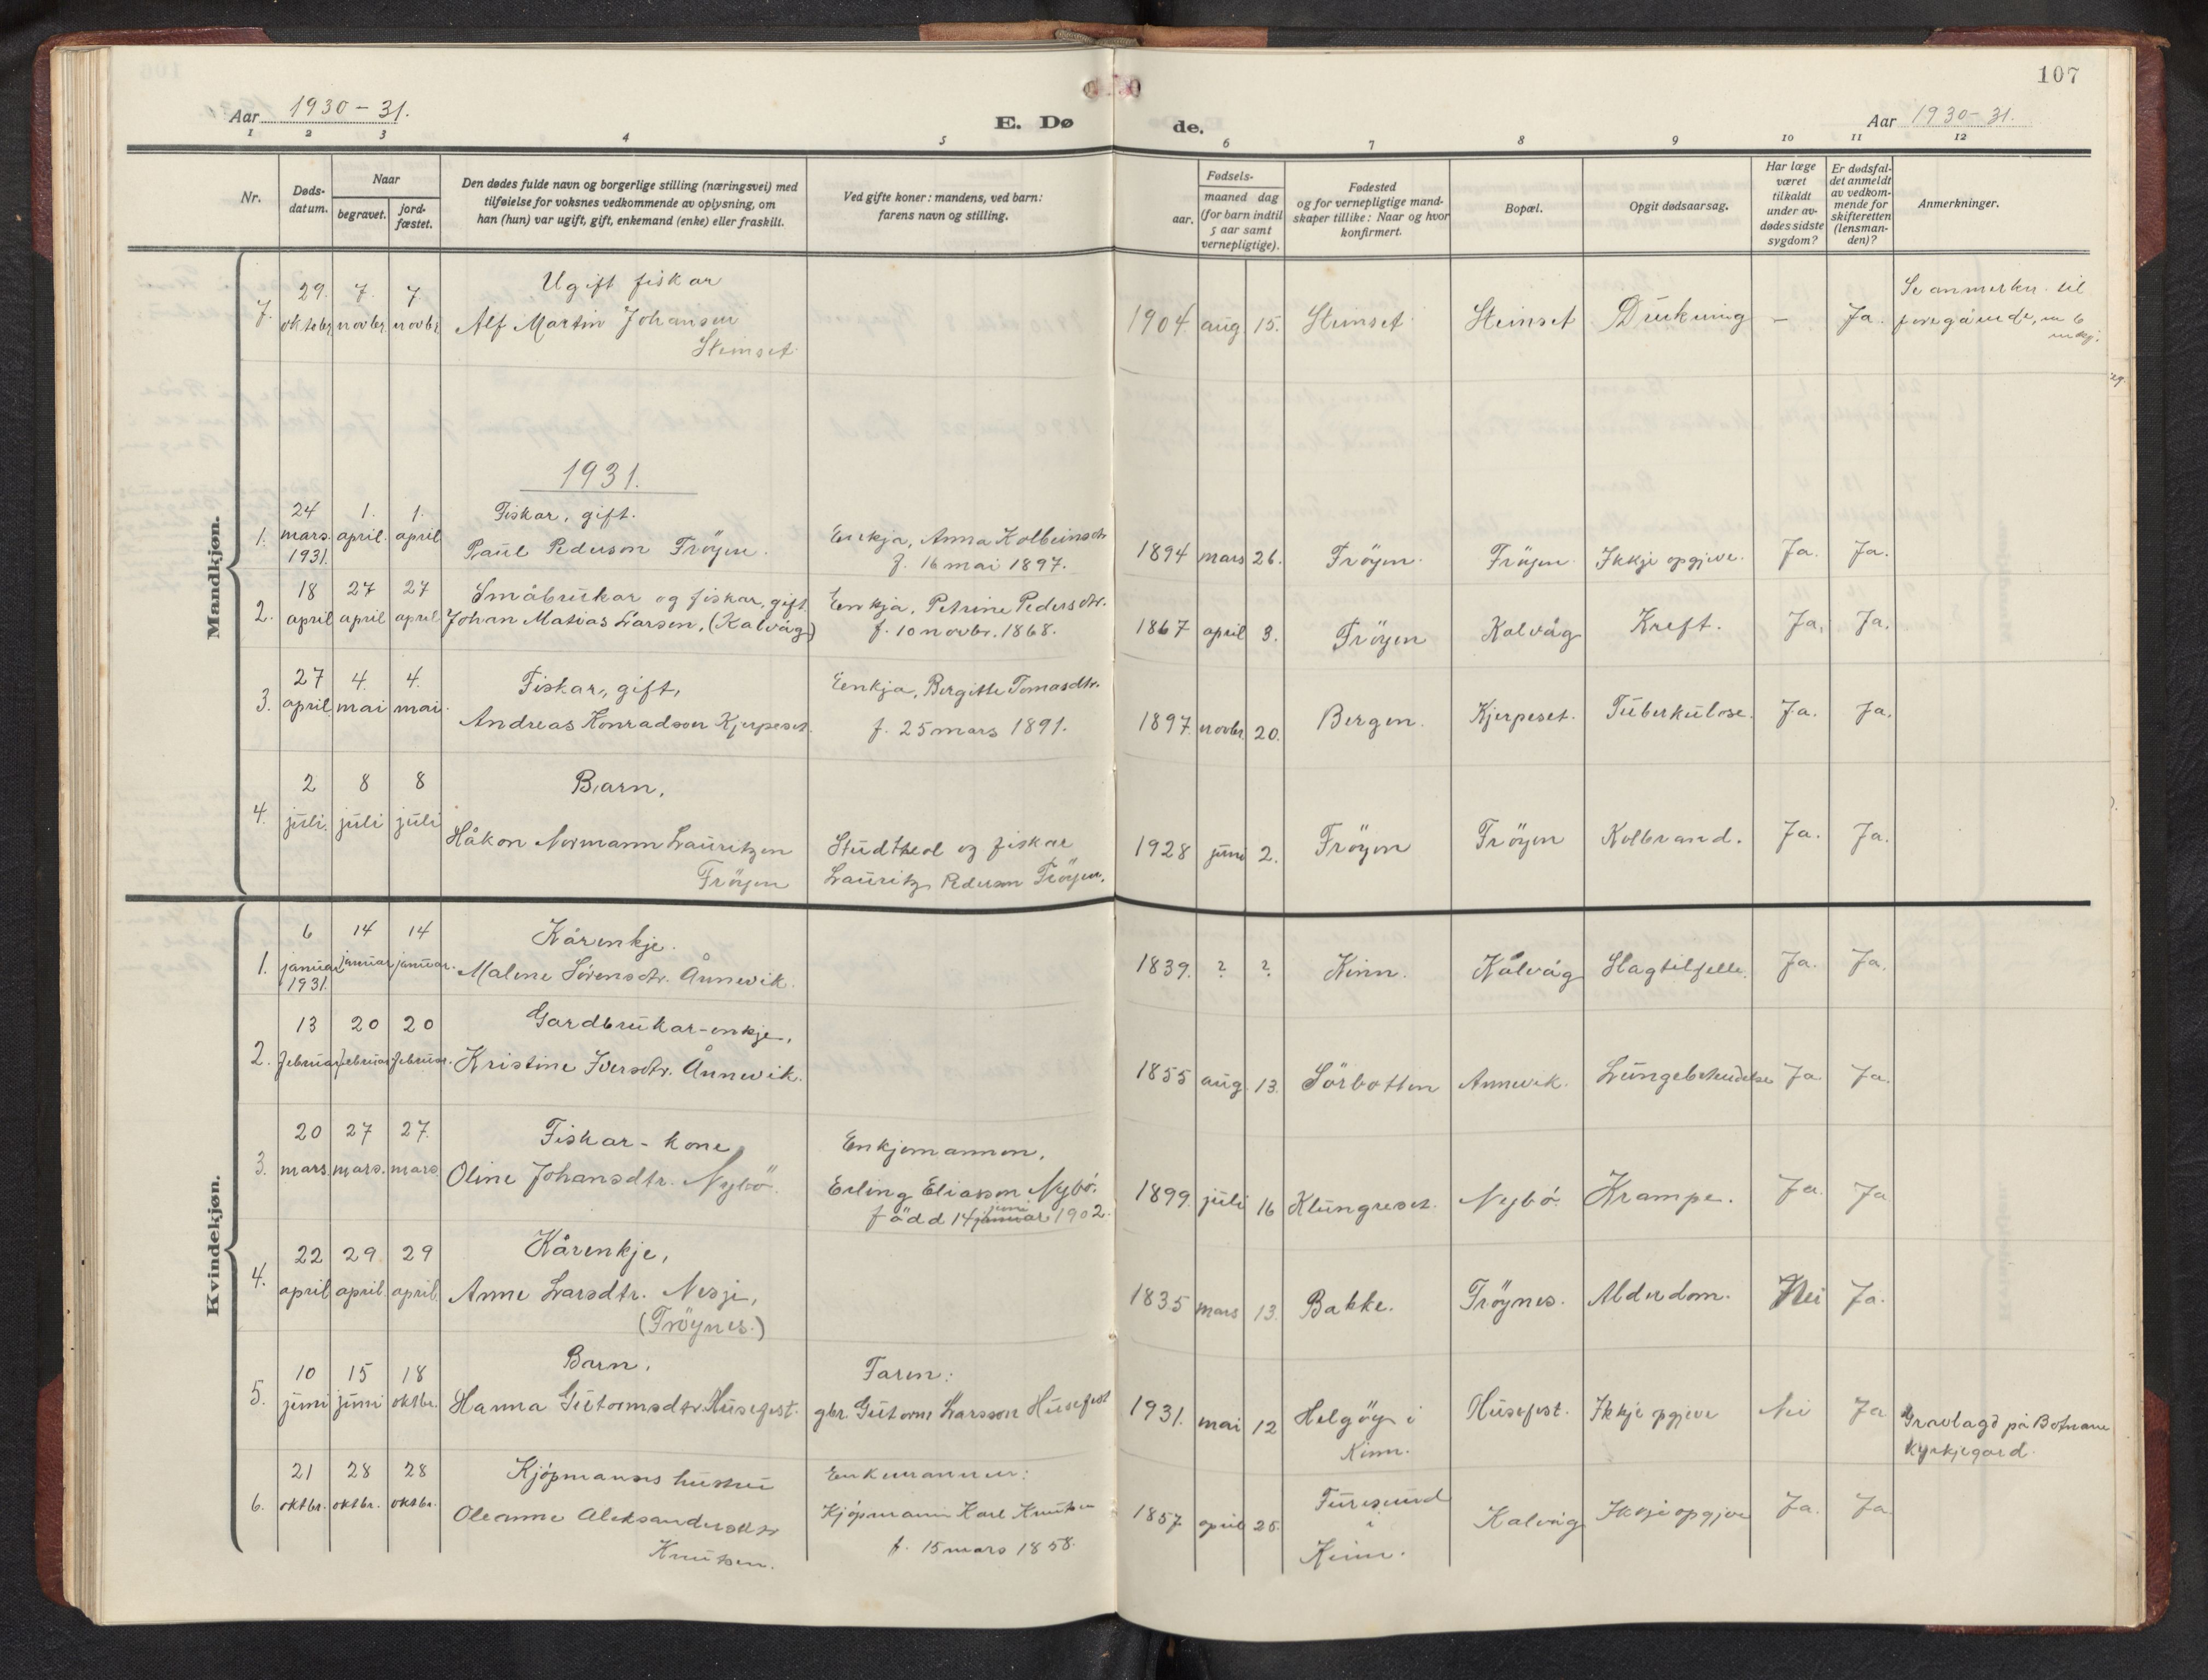 107
Aar 1930-31.
E. Døde.
Aar 1930-31.
1 2 3 4 5 6 7 8 9 10 11 12
Nr.
Døds-
datum.
Naar
begravet.
jord-
fæstet.
Den dødes fulde navn og borgerlige stilling (næringsvei) med
tilføielse for voksnes vedkommende av oplysning, om
han (hun) var ugift, gift, enkemand (enke) eller fraskilt.
Ved gifte koner: mandens, ved barn:
farens navn og stilling.
Fødsels-
aar.
maaned dag
(for barn indtil
5 aar samt
vernepligtige).
Fødested
og for vernepligtige mand-
skaper tillike: Naar og hvor
konfirmert.
Bopæl.
Opgit dødsaarsag.
Har læge
været
tilkaldt
under av-
dødes sidste
sygdom?
Er dødsfal-
det anmeldt
av vedkom-
mende for
skifteretten
(lensman-
den)?
Anmerkninger.
Mandkjøn.
7. 29. oktobr. 7. novbr. 7. novbr.
Ugift fiskar
Alf Martin Johansen
Steinset
1904 aug 15. Steinset Steinset Drukning – Ja.
Se anmerkn. til
foregåande, nr 6
mkj.
1931.
1. 24 mars. 1931. 1. april. 1. april
Fiskar, gift.
Paul Pederson Fröyen.
Enkja, Anna Kolbeinsdtr
f. 16 mai 1897.
1894 mars 26. Fröyen. Fröyen Ikkje opgjeve. Ja. Ja.
2. 18 april 27 april 27 april
Småbrukar og fiskar, gift
Johan Matias Larsen, (Kalvåg)
Enkja, Petrine Pedersdtr.
f. 10 novbr. 1868.
1867 april 3. Fröyen Kalvåg Kreft. Ja. Ja.
3. 27 april 4. mai 4. mai.
Fiskar, gift,
Andreas Konradson Kjerpeset.
Enkja, Bergitte Tomasdtr.
f. 25 mars 1891.
1897. novbr 20. Bergen. Kjerpeset. Tuberkulose. Ja. Ja.
4. 2 juli. 8 juli 8 juli
Barn,
Håkon Normann Lauritzen
Fröyen
Stud theol og fiskar
Lauritz Pederson Fröyen.
1928 juni 2. Fröyen Fröyen Kolbrand. Ja. Ja.
Kvindekjøn.
1. 6 januar 1931. 14 januar 14 januar.
Kårenkje.
Malene Sörensdtr. Ånnevik.
1839. ? ? Kinn. Kålvåg Slagtilfelle. Ja. Ja.
2. 13 februar 20 februar 20 februar.
Gardbrukar-enkje,
Kristine Iversdtr. Ånnevik.
1855 aug. 13. Sörbotten Annevik. Lungebetendelse Ja Ja.
3. 20 mars. 27 mars. 27. mars
Fiskar-kone
Oline Johansdtr. Nybö.
Enkjemannen,
Erling Eliasson Nybö.
född 14 januar juni 1902.
1899. juli 16 Klungreset. Nybö. Krampe. Ja. Ja
4. 22 april 29. april. 29 april.
Kårenkje,
Anne Larsdtr. Nesje,
(Fröynes.)
1835 mars 13. Bakke. Fröynes. Alderdom. Nei Ja.
5. 10 juni 15 juni 18 oktbr.
Barn,
Hanna Gutormsdtr. Husefest.
Faren:
gbr. Gutorm Larsson Husefest
1931. mai 12 Helgöy i
Kinn.
Husefest. Ikkje opgjeve Nei Ja
Gravlagd på Botnane
kyrkjegard.
6. 21 oktbr. 28 oktbr. 28 oktbr.
Kjöpmanns hustru
Oleanne Aleksandersdtr
Knutsen.
Enkemannen:
Kjöpmann Karl Knutsen
f. 15 mars 1858.
1857 april 25.
Furesund
i
Kinn.
Kalvåg Ikkje opgjeve Ja. Ja.